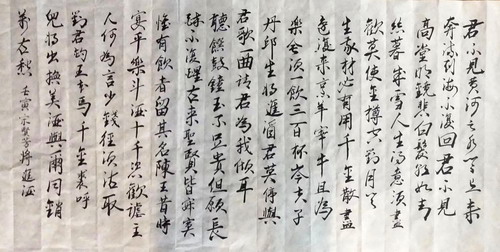 君不見黄河之水天上来
奔流到海不復回君不見
高堂明鏡悲白髮朝如青
絲暮成雪人生得意須盡
歡莫使金樽空對月天
生我材必有用千金散盡
還復来烹羊宰牛且為
樂會須一飲三百杯岑夫子
丹邱生將進酒君莫停與
君歌一曲請君為我傾耳
聽饌鼓鐘玉不足贵但願長
醉不復醒古来聖賢皆寂寞
惟有飲者留其名陳王昔時
宴平樂斗酒十千恣歡謔主
人何為言少錢徑須沽取
對君酌五花馬千金裘呼
兒將出換美酒與爾同銷
萬古愁 壬寅 將進酒